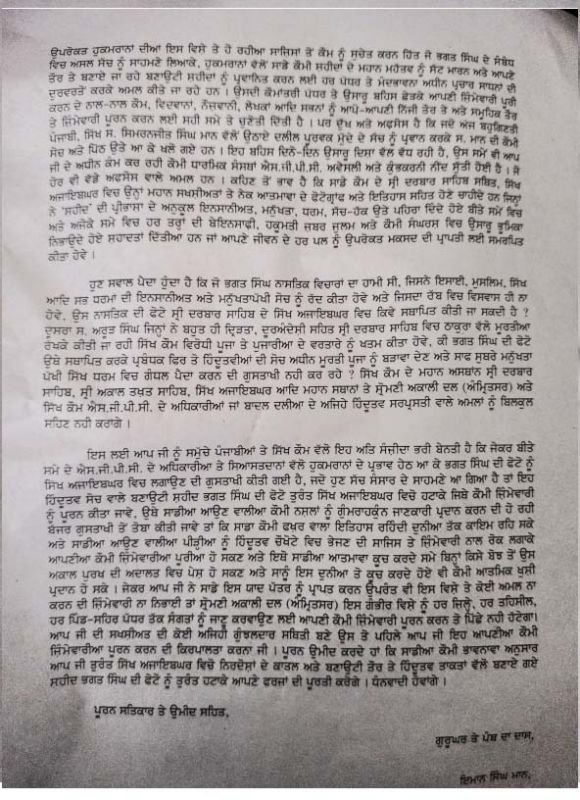 ਉਪਰੋਕਤ ਹੁਕਮਰਾਨਾਂ ਦੀਆ ਇਸ ਵਿਸੇ ਤੇ ਹੋ ਰਹੀਆ ਸਾਜਿਸਾਂ ਤੋਂ ਕੌਮ ਨੂੰ ਸੁਚੇਤ ਕਰਨ ਹਿੱਤ ਜੋ ਭਗਤ ਸਿੰਘ ਦੇ ਸੰਬੰਧ
ਵਿਚ ਅਸਲ ਸੱਚ ਨੂੰ ਸਾਹਮਣੇ ਲਿਆਕੇ, ਹੁਕਮਰਾਨਾਂ ਵੱਲੋਂ ਸਾਡੇ ਕੌਮੀ ਸ਼ਹੀਦਾਂ ਦੇ ਮਹਾਨ ਮਹੱਤਵ ਨੂੰ ਸੱਟ ਮਾਰਨ ਅਤੇ ਆਪਣੇ
ਤੌਰ ਤੇ ਬਣਾਏ ਜਾ ਰਹੇ ਬਣਾਉਟੀ ਸ਼ਹੀਦਾਂ ਨੂੰ ਪ੍ਰਵਾਨਿਤ ਕਰਨ ਲਈ ਹਰ ਪੱਧਰ ਤੇ ਮੰਦਭਾਵਨਾ ਅਧੀਨ ਪ੍ਰਚਾਰ ਸਾਧਨਾਂ ਦੀ
ਦੁਰਵਰਤੋਂ ਕਰਕੇ ਅਮਲ ਕੀਤੇ ਜਾ ਰਹੇ ਹਨ । ਉਸਦੀ ਕੌਮਾਂਤਰੀ ਪੱਧਰ ਤੇ ਉਸਾਰੂ ਬਹਿਸ ਛੇੜਕੇ ਆਪਣੀ ਜ਼ਿੰਮੇਵਾਰੀ ਪੂਰੀ
ਕਰਨ ਦੇ ਨਾਲ-ਨਾਲ ਕੌਮ, ਵਿਦਵਾਨਾਂ, ਨੌਜਵਾਨੀ, ਲੇਖਕਾਂ ਆਦਿ ਸਭਨਾਂ ਨੂੰ ਆਪੋ-ਆਪਣੀ ਨਿੱਜੀ ਤੌਰ ਤੇ ਅਤੇ ਸਮੂਹਿਕ ਤੌਰ
ਤੇ ਜ਼ਿੰਮੇਵਾਰੀ ਪੂਰਨ ਕਰਨ ਲਈ ਸਹੀ ਸਮੇਂ ਤੇ ਚੁਣੌਤੀ ਦਿੱਤੀ ਹੈ । ਪਰ ਦੁੱਖ ਅਤੇ ਅਫਸੋਸ ਹੈ ਕਿ ਜਦੋਂ ਅੱਜ ਬਹੁਗਿਣਤੀ
ਪੰਜਾਬੀ, ਸਿੱਖ ਸ. ਸਿਮਰਨਜੀਤ ਸਿੰਘ ਮਾਨ ਵੱਲੋਂ ਉਠਾਏ ਦਲੀਲ ਪੂਰਵਕ ਮੁੱਦੇ ਦੇ ਸੱਚ ਨੂੰ ਪ੍ਰਵਾਨ ਕਰਕੇ ਸ. ਮਾਨ ਦੀ ਕੌਮੀ
ਸੋਚ ਅਤੇ ਪਿੱਠ ਉਤੇ ਆ ਕੇ ਖਲੋ ਗਏ ਹਨ । ਇਹ ਬਹਿਸ ਦਿਨੋ-ਦਿਨ ਉਸਾਰੂ ਦਿਸ਼ਾ ਵੱਲ ਵੱਧ ਰਹੀ ਹੈ, ਉਸ ਸਮੇਂ ਵੀ ਆਪ
ਜੀ ਦੇ ਅਧੀਨ ਕੰਮ ਕਰ ਰਹੀ ਕੌਮੀ ਧਾਰਮਿਕ ਸੰਸਥਾਂ ਐਸ.ਜੀ.ਪੀ.ਸੀ. ਅਵੇਸਲੀ ਅਤੇ ਕੁੰਭਕਰਨੀ ਨੀਂਦ ਸੁੱਤੀ ਹੋਈ ਹੈ । ਜੋ
ਹੋਰ ਵੀ ਵੱਡੇ ਅਫਸੋਸ ਵਾਲੇ ਅਮਲ ਹਨ । ਕਹਿਣ ਤੋਂ ਭਾਵ ਹੈ ਕਿ ਸਾਡੇ ਕੌਮ ਦੇ ਸ੍ਰੀ ਦਰਬਾਰ ਸਾਹਿਬ ਸਥਿਤ, ਸਿੱਖ
ਅਜਾਇਬਘਰ ਵਿਚ ਉਨ੍ਹਾਂ ਮਹਾਨ ਸਖਸ਼ੀਅਤਾਂ ਤੇ ਨੇਕ ਆਤਮਾਵਾਂ ਦੇ ਫੋਟੋਗ੍ਰਾਫ ਅਤੇ ਇਤਿਹਾਸ ਸਹਿਤ ਹੋਣੇ ਚਾਹੀਦੇ ਹਨ ਜਿਨ੍ਹਾਂ
ਨੇ 'ਸ਼ਹੀਦ' ਦੀ ਪ੍ਰੀਭਾਸ਼ਾ ਦੇ ਅਨੁਕੂਲ ਇਨਸਾਨੀਅਤ, ਮਨੁੱਖਤਾ, ਧਰਮ, ਸੱਚ-ਹੱਕ ਉਤੇ ਪਹਿਰਾ ਦਿੰਦੇ ਹੋਏ ਬੀਤੇ ਸਮੇਂ ਵਿਚ
ਅਤੇ ਅਜੋਕੇ ਸਮੇਂ ਵਿਚ ਹਰ ਤਰ੍ਹਾਂ ਦੀ ਬੇਇਨਸਾਫ਼ੀ, ਹਕੂਮਤੀ ਜਬਰ ਜੁਲਮ ਅਤੇ ਕੌਮੀ ਸੰਘਰਸ਼ ਵਿਚ ਉਸਾਰੂ ਭੂਮਿਕਾ
ਨਿਭਾਉਂਦੇ ਹੋਏ ਸ਼ਹਾਦਤਾਂ ਦਿੱਤੀਆਂ ਹਨ ਜਾਂ ਆਪਣੇ ਜੀਵਨ ਦੇ ਹਰ ਪਲ ਨੂੰ ਉਪਰੋਕਤ ਮਕਸਦ ਦੀ ਪ੍ਰਾਪਤੀ ਲਈ ਸਮਰਪਿਤ
ਕੀਤਾ ਹੋਵੇ ।
ਹੁਣ ਸਵਾਲ ਪੈਦਾ ਹੁੰਦਾ ਹੈ ਕਿ ਜੋ ਭਗਤ ਸਿੰਘ ਨਾਸਤਿਕ ਵਿਚਾਰਾਂ ਦਾ ਹਾਮੀ ਸੀ, ਜਿਸਨੇ ਇਸਾਈ, ਮੁਸਲਿਮ, ਸਿੱਖ
ਆਦਿ ਸਭ ਧਰਮਾਂ ਦੀ ਇਨਸਾਨੀਅਤ ਅਤੇ ਮਨੁੱਖਤਾਪੱਖੀ ਸੋਚ ਨੂੰ ਰੱਦ ਕੀਤਾ ਹੋਵੇ ਅਤੇ ਜਿਸਦਾ ਰੱਬ ਵਿਚ ਵਿਸਵਾਸ ਹੀ ਨਾ
ਹੋਵੇ, ਉਸ ਨਾਸਤਿਕ ਦੀ ਫੋਟੋ ਸ੍ਰੀ ਦਰਬਾਰ ਸਾਹਿਬ ਦੇ ਸਿੱਖ ਅਜਾਇਬਘਰ ਵਿਚ ਕਿਵੇਂ ਸਥਾਪਿਤ ਕੀਤੀ ਜਾ ਸਕਦੀ ਹੈ ?
ਦੂਸਰਾ ਸ. ਅਰੂੜ ਸਿੰਘ ਜਿਨ੍ਹਾਂ ਨੇ ਬਹੁਤ ਹੀ ਦ੍ਰਿੜਤਾ, ਦੂਰਅੰਦੇਸੀ ਸਹਿਤ ਸ੍ਰੀ ਦਰਬਾਰ ਸਾਹਿਬ ਵਿਚ ਠਾਕੁਰਾਂ ਵੱਲੋਂ ਮੂਰਤੀਆਂ
ਰੱਖਕੇ ਕੀਤੀ ਜਾ ਰਹੀ ਸਿੱਖ ਕੌਮ ਵਿਰੋਧੀ ਪੂਜਾ ਤੇ ਪੁਜਾਰੀਆਂ ਦੇ ਵਰਤਾਰੇ ਨੂੰ ਖਤਮ ਕੀਤਾ ਹੋਵੇ, ਕੀ ਭਗਤ ਸਿੰਘ ਦੀ ਫੋਟੋ
ਉਥੇ ਸਥਾਪਿਤ ਕਰਕੇ ਪ੍ਰਬੰਧਕ ਫਿਰ ਤੋਂ ਹਿੰਦੂਤਵੀਆਂ ਦੀ ਸੋਚ ਅਧੀਨ ਮੂਰਤੀ ਪੂਜਾ ਨੂੰ ਬੜਾਵਾ ਦੇਣ ਅਤੇ ਸਾਫ ਸੁਥਰੇ ਮਨੁੱਖਤਾ
ਪੱਖੀ ਸਿੱਖ ਧਰਮ ਵਿਚ ਗੰਧਲ ਪੈਦਾ ਕਰਨ ਦੀ ਗੁਸਤਾਖੀ ਨਹੀ ਕਰ ਰਹੇ ? ਸਿੱਖ ਕੌਮ ਦੇ ਮਹਾਨ ਅਸਥਾਂਨ ਸ੍ਰੀ ਦਰਬਾਰ
ਸਾਹਿਬ, ਸ੍ਰੀ ਅਕਾਲ ਤਖ਼ਤ ਸਾਹਿਬ, ਸਿੱਖ ਅਜਾਇਬਘਰ ਆਦਿ ਮਹਾਨ ਸਥਾਨਾਂ ਤੇ ਸ਼੍ਰੋਮਣੀ ਅਕਾਲੀ ਦਲ (ਅੰਮ੍ਰਿਤਸਰ) ਅਤੇ
ਸਿੱਖ ਕੌਮ ਐਸ.ਜੀ.ਪੀ.ਸੀ. ਦੇ ਅਧਿਕਾਰੀਆਂ ਜਾਂ ਬਾਦਲ ਦਲੀਆਂ ਦੇ ਅਜਿਹੇ ਹਿੰਦੂਤਵ ਸਰਪ੍ਰਸਤੀ ਵਾਲੇ ਅਮਲਾਂ ਨੂੰ ਬਿਲਕੁਲ
ਸਹਿਣ ਨਹੀ ਕਰਾਂਗੇ ।
ਇਸ ਲਈ ਆਪ ਜੀ ਨੂੰ ਸਮੁੱਚੇ ਪੰਜਾਬੀਆਂ ਤੇ ਸਿੱਖ ਕੌਮ ਵੱਲੋਂ ਇਹ ਅਤਿ ਸੰਜ਼ੀਦਾ ਭਰੀ ਬੇਨਤੀ ਹੈ ਕਿ ਜੇਕਰ ਬੀਤੇ
ਸਮੇਂ ਦੇ ਐਸ.ਜੀ.ਪੀ.ਸੀ. ਦੇ ਅਧਿਕਾਰੀਆ ਤੇ ਸਿਆਸਤਦਾਨਾਂ ਵੱਲੋਂ ਹੁਕਮਰਾਨਾਂ ਦੇ ਪ੍ਰਭਾਵ ਹੇਠ ਆ ਕੇ ਭਗਤ ਸਿੰਘ ਦੀ ਫੋਟੋ ਨੂੰ
ਸਿੱਖ ਅਜਾਇਬਘਰ ਵਿਚ ਲਗਾਉਣ ਦੀ ਗੁਸਤਾਖੀ ਕੀਤੀ ਗਈ ਹੈ, ਜਦੋਂ ਹੁਣ ਸੱਚ ਸੰਸਾਰ ਦੇ ਸਾਹਮਣੇ ਆ ਗਿਆ ਹੈ ਤਾਂ ਇਹ
ਹਿੰਦੂਤਵ ਸੋਚ ਵਾਲੇ ਬਣਾਉਟੀ ਸ਼ਹੀਦ ਭਗਤ ਸਿੰਘ ਦੀ ਫੋਟੋ ਤੁਰੰਤ ਸਿੱਖ ਅਜਾਇਬਘਰ ਵਿਚੋਂ ਹਟਾਕੇ ਜਿਥੇ ਕੌਮੀ ਜ਼ਿੰਮੇਵਾਰੀ
ਨੂੰ ਪੂਰਨ ਕੀਤਾ ਜਾਵੇ, ਉਥੇ ਸਾਡੀਆ ਆਉਣ ਵਾਲੀਆ ਕੌਮੀ ਨਸਲਾਂ ਨੂੰ ਗੁੰਮਰਾਹਕੁੰਨ ਜਾਣਕਾਰੀ ਪ੍ਰਦਾਨ ਕਰਨ ਦੀ ਹੋ ਰਹੀ
ਬੱਜਰ ਗੁਸਤਾਖੀ ਤੋਂ ਤੋਬਾ ਕੀਤੀ ਜਾਵੇ ਤਾਂ ਕਿ ਸਾਡਾ ਕੌਮੀ ਫਖ਼ਰ ਵਾਲਾ ਇਤਿਹਾਸ ਰਹਿੰਦੀ ਦੁਨੀਆਂ ਤੱਕ ਕਾਇਮ ਰਹਿ ਸਕੇ
ਅਤੇ ਸਾਡੀਆ ਆਉਣ ਵਾਲੀਆ ਪੀੜ੍ਹੀਆ ਨੂੰ ਹਿੰਦੂਤਵ ਚੌਖਟੇ ਵਿਚ ਭੇਜਣ ਦੀ ਸਾਜਿਸ ਤੇ ਜ਼ਿੰਮੇਵਾਰੀ ਨਾਲ ਰੋਕ ਲਗਾਕੇ
ਆਪਣੀਆਂ ਕੌਮੀ ਜ਼ਿੰਮੇਵਾਰੀਆ ਪੂਰੀਆ ਹੋ ਸਕਣ ਅਤੇ ਇਥੋਂ ਸਾਡੀਆ ਆਤਮਾਵਾਂ ਕੂਚ ਕਰਦੇ ਸਮੇਂ ਬਿਨ੍ਹਾਂ ਕਿਸੇ ਬੋਝ ਤੋਂ ਉਸ
ਅਕਾਲ ਪੁਰਖ ਦੀ ਅਦਾਲਤ ਵਿਚ ਪੇਸ਼ ਹੋ ਸਕਣ ਅਤੇ ਸਾਨੂੰ ਇਸ ਦੁਨੀਆ ਤੋਂ ਕੂਚ ਕਰਦੇ ਹੋਏ ਵੀ ਕੌਮੀ ਆਤਮਿਕ ਖੁਸ਼ੀ
ਪ੍ਰਦਾਨ ਹੋ ਸਕੇ । ਜੇਕਰ ਆਪ ਜੀ ਨੇ ਸਾਡੇ ਇਸ ਯਾਦ ਪੱਤਰ ਨੂੰ ਪ੍ਰਾਪਤ ਕਰਨ ਉਪਰੰਤ ਵੀ ਇਸ ਵਿਸ਼ੇ ਤੇ ਕੋਈ ਅਮਲ ਨਾ
ਕਰਨ ਦੀ ਜ਼ਿੰਮੇਵਾਰੀ ਨਾ ਨਿਭਾਈ ਤਾਂ ਸ਼੍ਰੋਮਣੀ ਅਕਾਲੀ ਦਲ (ਅੰਮ੍ਰਿਤਸਰ) ਇਸ ਗੰਭੀਰ ਵਿਸ਼ੇ ਨੂੰ ਹਰ ਜਿਲ੍ਹੇ, ਹਰ ਤਹਿਸੀਲ,
ਹਰ ਪਿੰਡ-ਸਹਿਰ ਪੱਧਰ ਤੱਕ ਸੰਗਤਾਂ ਨੂੰ ਜਾਣੂ ਕਰਵਾਉਣ ਲਈ ਆਪਣੀ ਕੌਮੀ ਜ਼ਿੰਮੇਵਾਰੀ ਪੂਰਨ ਕਰਨ ਤੋਂ ਪਿੱਛੇ ਨਹੀ ਹਟੇਗਾ।
ਆਪ ਜੀ ਦੀ ਸਖਸੀਅਤ ਦੀ ਕੋਈ ਅਜਿਹੀ ਗੁੰਝਲਦਾਰ ਸਥਿਤੀ ਬਣੇ ਉਸ ਤੋਂ ਪਹਿਲੇ ਆਪ ਜੀ ਇਹ ਆਪਣੀਆ ਕੌਮੀ
ਜ਼ਿੰਮੇਵਾਰੀਆ ਪੂਰਨ ਕਰਨ ਦੀ ਕਿਰਪਾਲਤਾ ਕਰਨਾ ਜੀ । ਪੂਰਨ ਉਮੀਦ ਕਰਦੇ ਹਾਂ ਕਿ ਸਾਡੀਆ ਕੌਮੀ ਭਾਵਨਾਵਾਂ ਅਨੁਸਾਰ
ਆਪ ਜੀ ਤੁਰੰਤ ਸਿੱਖ ਅਜਾਇਬਘਰ ਵਿਚੋਂ ਨਿਰਦੋਸ਼ਾਂ ਦੇ ਕਾਤਲ ਅਤੇ ਬਣਾਉਟੀ ਤੌਰ ਤੇ ਹਿੰਦੂਤਵ ਤਾਕਤਾਂ ਵੱਲੋਂ ਬਣਾਏ ਗਏ
ਸ਼ਹੀਦ ਭਗਤ ਸਿੰਘ ਦੀ ਫੋਟੋ ਨੂੰ ਤੁਰੰਤ ਹਟਾਕੇ ਆਪਣੇ ਫਰਜਾਂ ਦੀ ਪੂਰਤੀ ਕਰੋਗੇ । ਧੰਨਵਾਦੀ ਹੋਵਾਂਗੇ ।
ਪੂਰਨ ਸਤਿਕਾਰ ਤੇ ਉਮੀਦ ਸਹਿਤ,
ਗੁਰੂਘਰ ਤੇ ਪੰਥ ਦਾ ਦਾਸ,
ਇਮਾਨ ਸਿੰਘ ਮਾਨ,